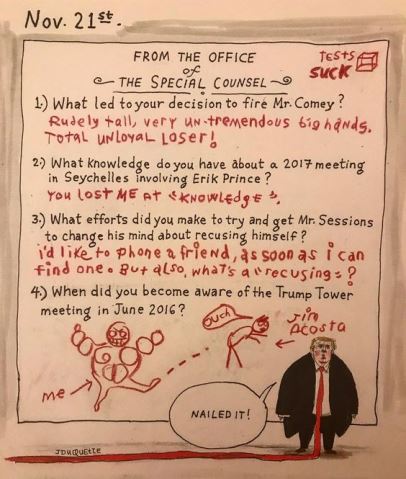 Nov. 21st.
FROM THE OFFICE
of
THE SPECIAL COUNSEL
TESTS
SUCK
1.) What led to your decision to fire Mr. Comey?
Rudely tall, very un-tremendous big hands.
Total unloyal loser!
2.) What knowledge do you have about a 2017 meeting
in Seychelles involving Erik Prince?
YOU LOST ME AT "KNOWLEDGE".
3.) What efforts did you make to try and get Mr. Sessions
to change his mind about recusing himself?
i'd like to phone a friend, as soon as i can
find one. But also, what's a "recusing"?
4.) When did you become aware of the Trump Tower
meeting in June 2016?
OUCH
Jim
ACOSTA
me
NAILED IT!
JDUQUETTE